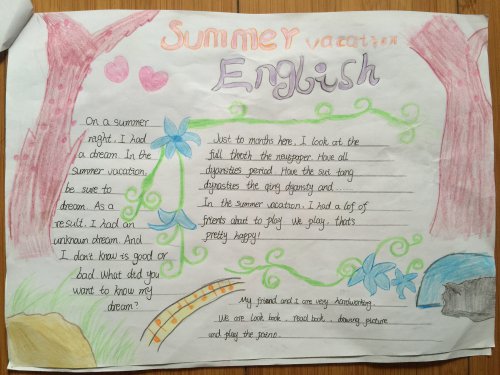 Summer vacation
English
On a summer
night, I had
a dream. In the
summer vacation,
be sure to
dream. As a
result, I had an
unknown dream. And
I don't know is good or
bad. What did you
want to know my
dream?
Just to months here, I look at the
full the newspaper. Have all
dyansties period. Have the sui tang
dynasties the qing dyansty and......
In the summer vacation, I had a lot of
frients about to play. We play, that's
pretty happy!
My friend and I are very hardworking.
We are look book, read book, drawing picture
and play the poem.